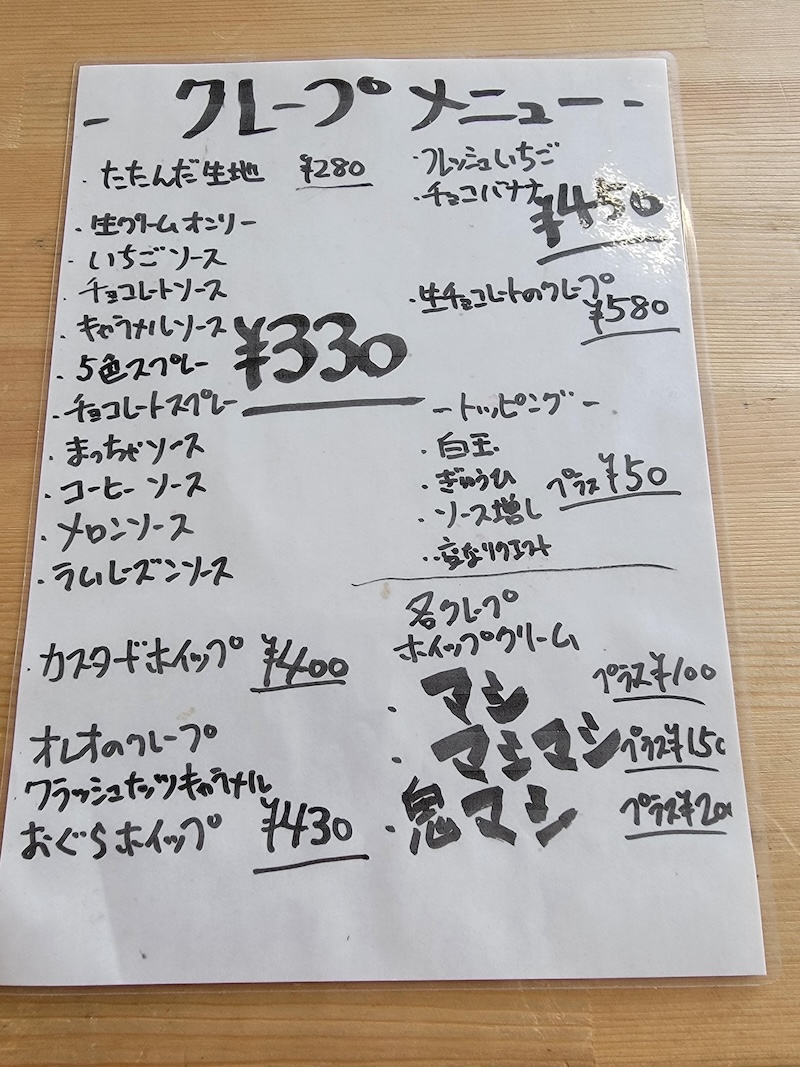 - クレープ メニュー -
・たたんだ生地 ¥280
・生クリームオンリー
・いちごソース
・チョコレートソース
・キャラメルソース
・5色スプレー
・チョコレートスプレー
・まっちゃソース
・コーヒーソース
・メロンソース
・ラムレーズンソース
¥330
・カスタードホイップ ¥400
オレオのクレープ
クラッシュナッツキャラメル
おぐらホイップ ¥430
・フレッシュいちご
・チョコバナナ
¥450
・生チョコレートのクレープ
¥580
-トッピング-
・白玉
・ぎゅうひ
・ソース増し
・変なリクエスト
プラス¥50
各クレープ
ホイップクリーム
・マシ プラス¥100
・マシマシ プラス¥150
・鬼マシ プラス¥200